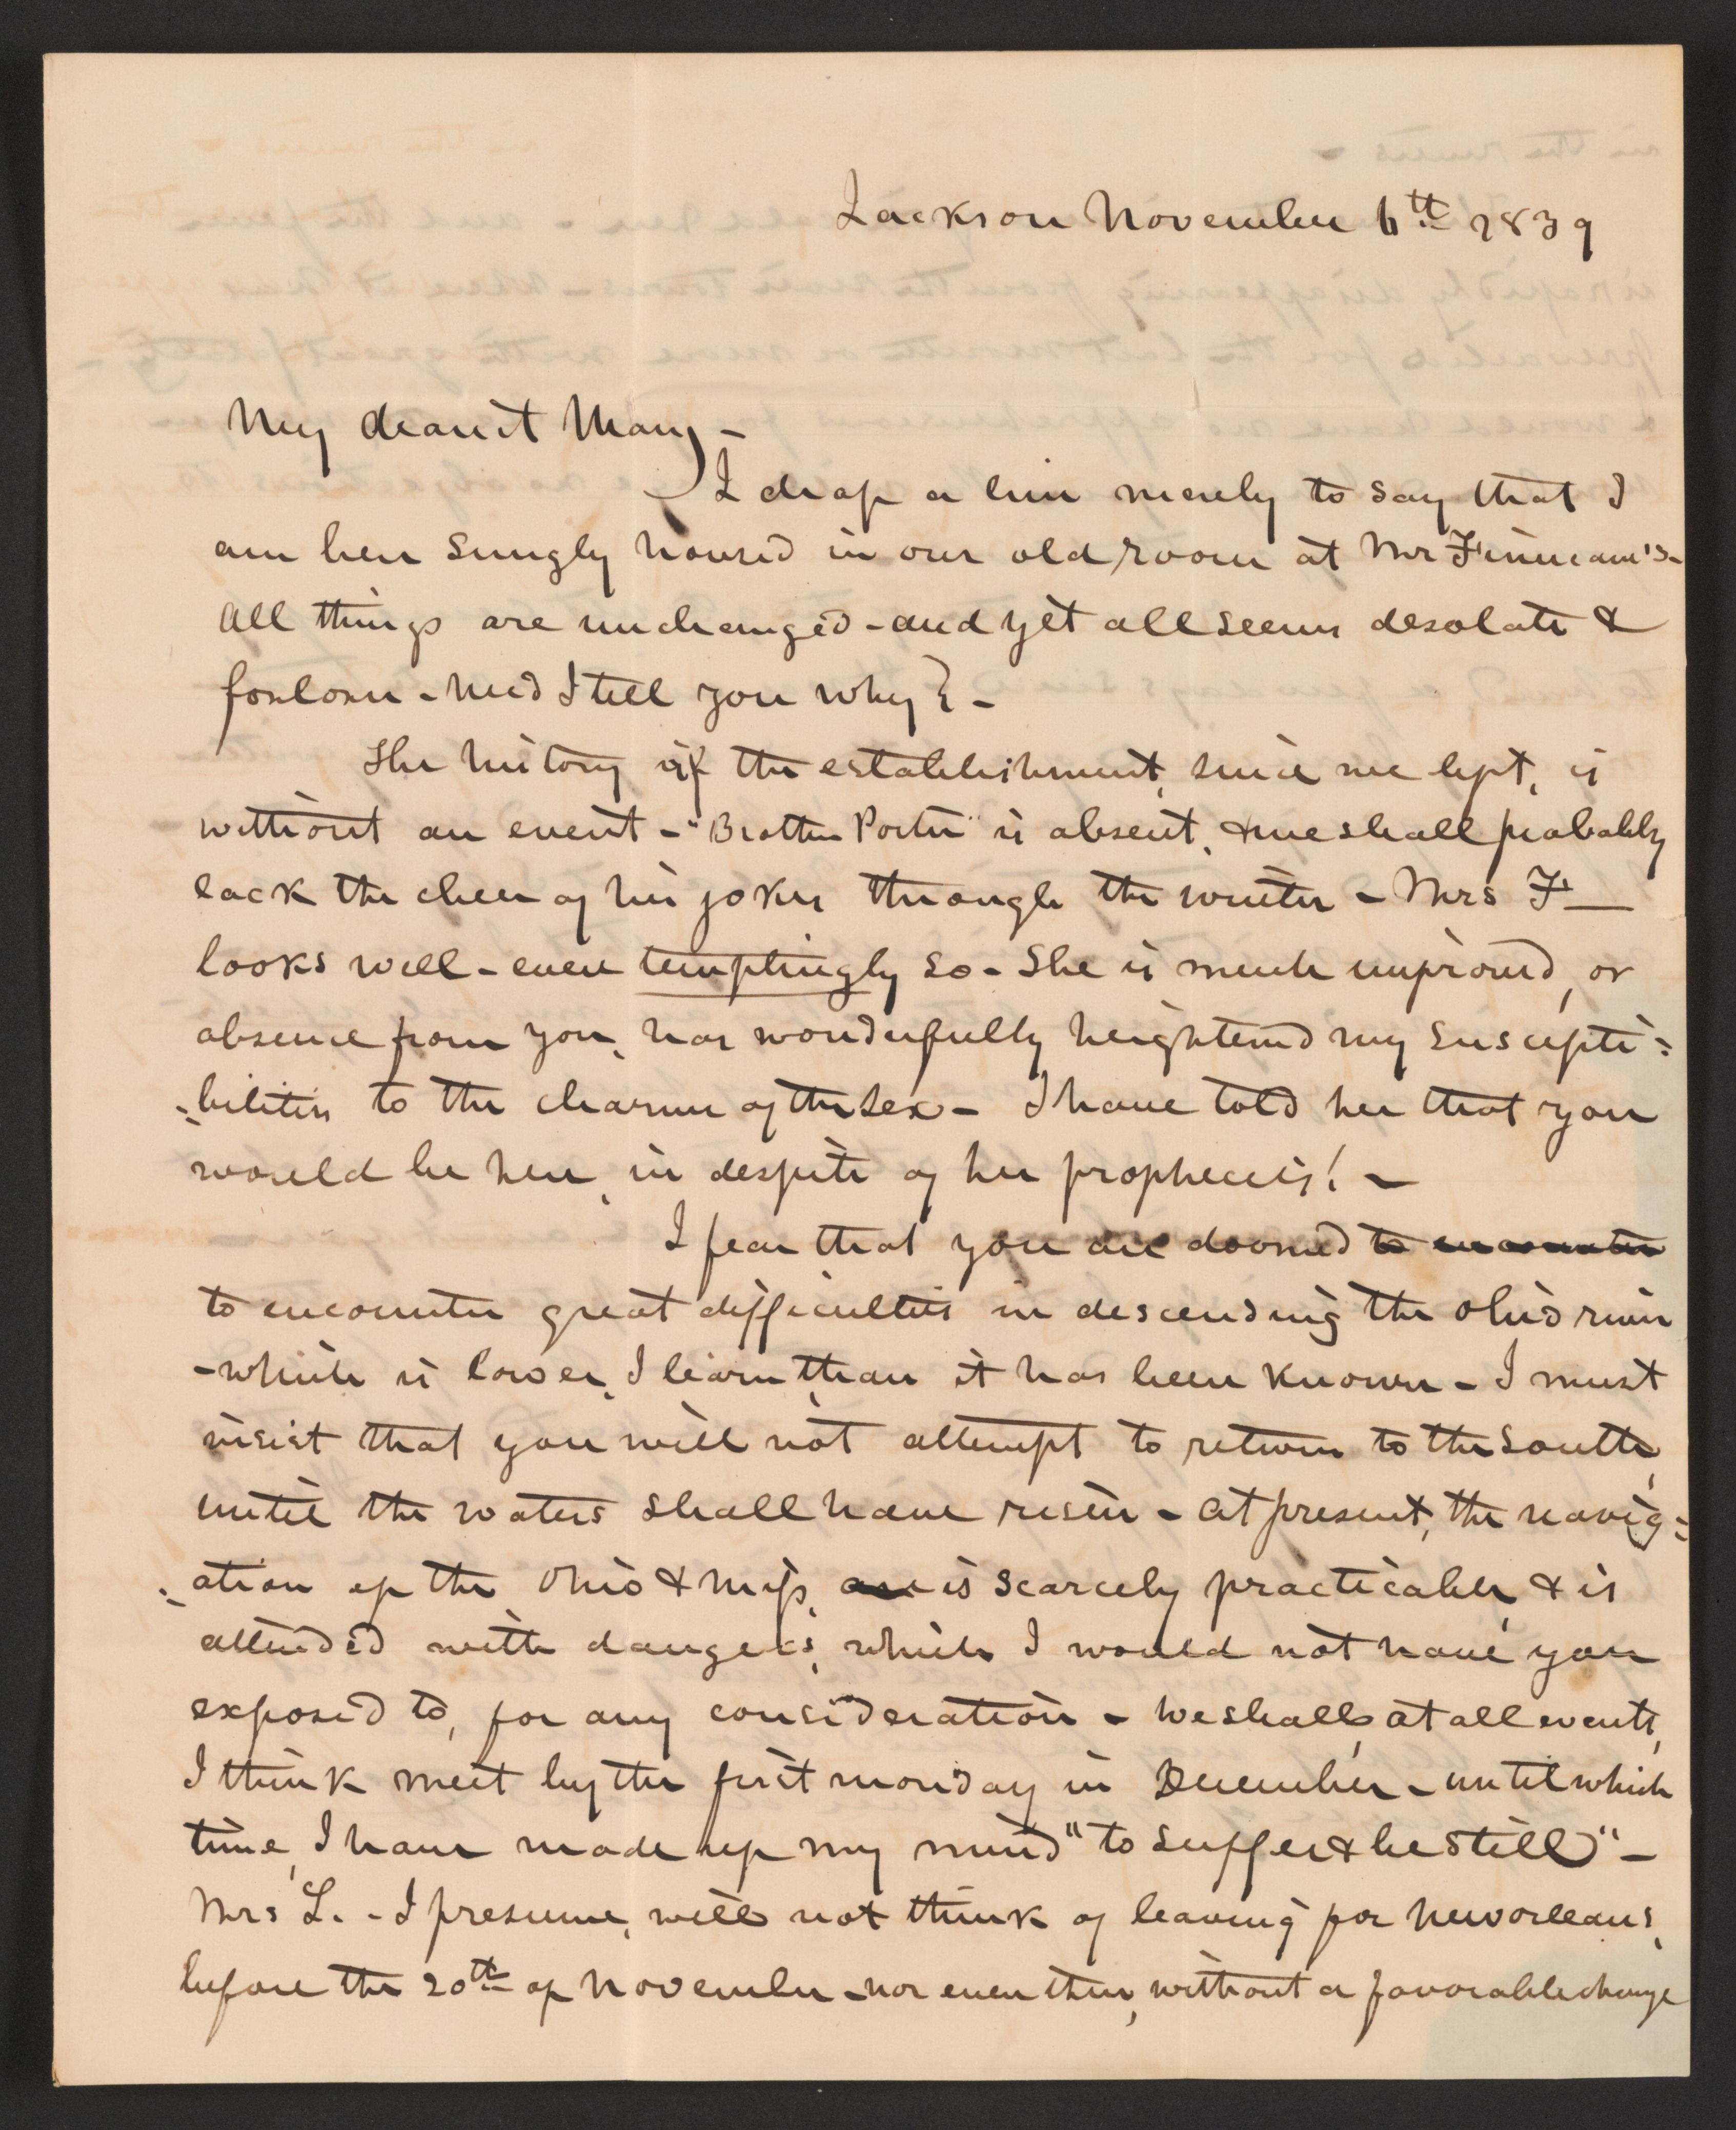 Jackson November 6th 1839
My dearest Mary -
I drop a line merely to say that I
am here snugly housed in our old room at Mr Finucane's -
All things are unchanged - and yet all seems desolate &
forlorn - Need I tell you why? -
The history of the establishment, since we left, is
without an event - "Brother Porter" is absent, & we shall probably
lack the cheer of his jokes through the winter - Mrs F—
looks well - even temptingly so - She is much improved, or
absence from you, has wonderfully heightened my suscepti=
=bilities to the charms of the sex - I have told her that you
would be here, in despite of her prophecies! -
I fear that you are doomed to encounter
to encounter great difficulties in descending the Ohio river
- which is lower, I learn, than it has been known - I must
insist that you will not attempt to return to the South,
until the waters shall have risen - At present, the navig=
=ation up the Ohio & Miss, is scarcely practicable, & is
attended with dangers, which I would not have you
exposed to, for any consideration - We shall, at all events,
I think meet by the first monday in December - until which
time, I have made up my mind "to suffer & be still" -
Mrs L. - I presume, will not think of leaving for New orleans,
before the 20th of November - nor even then, without a favorable change